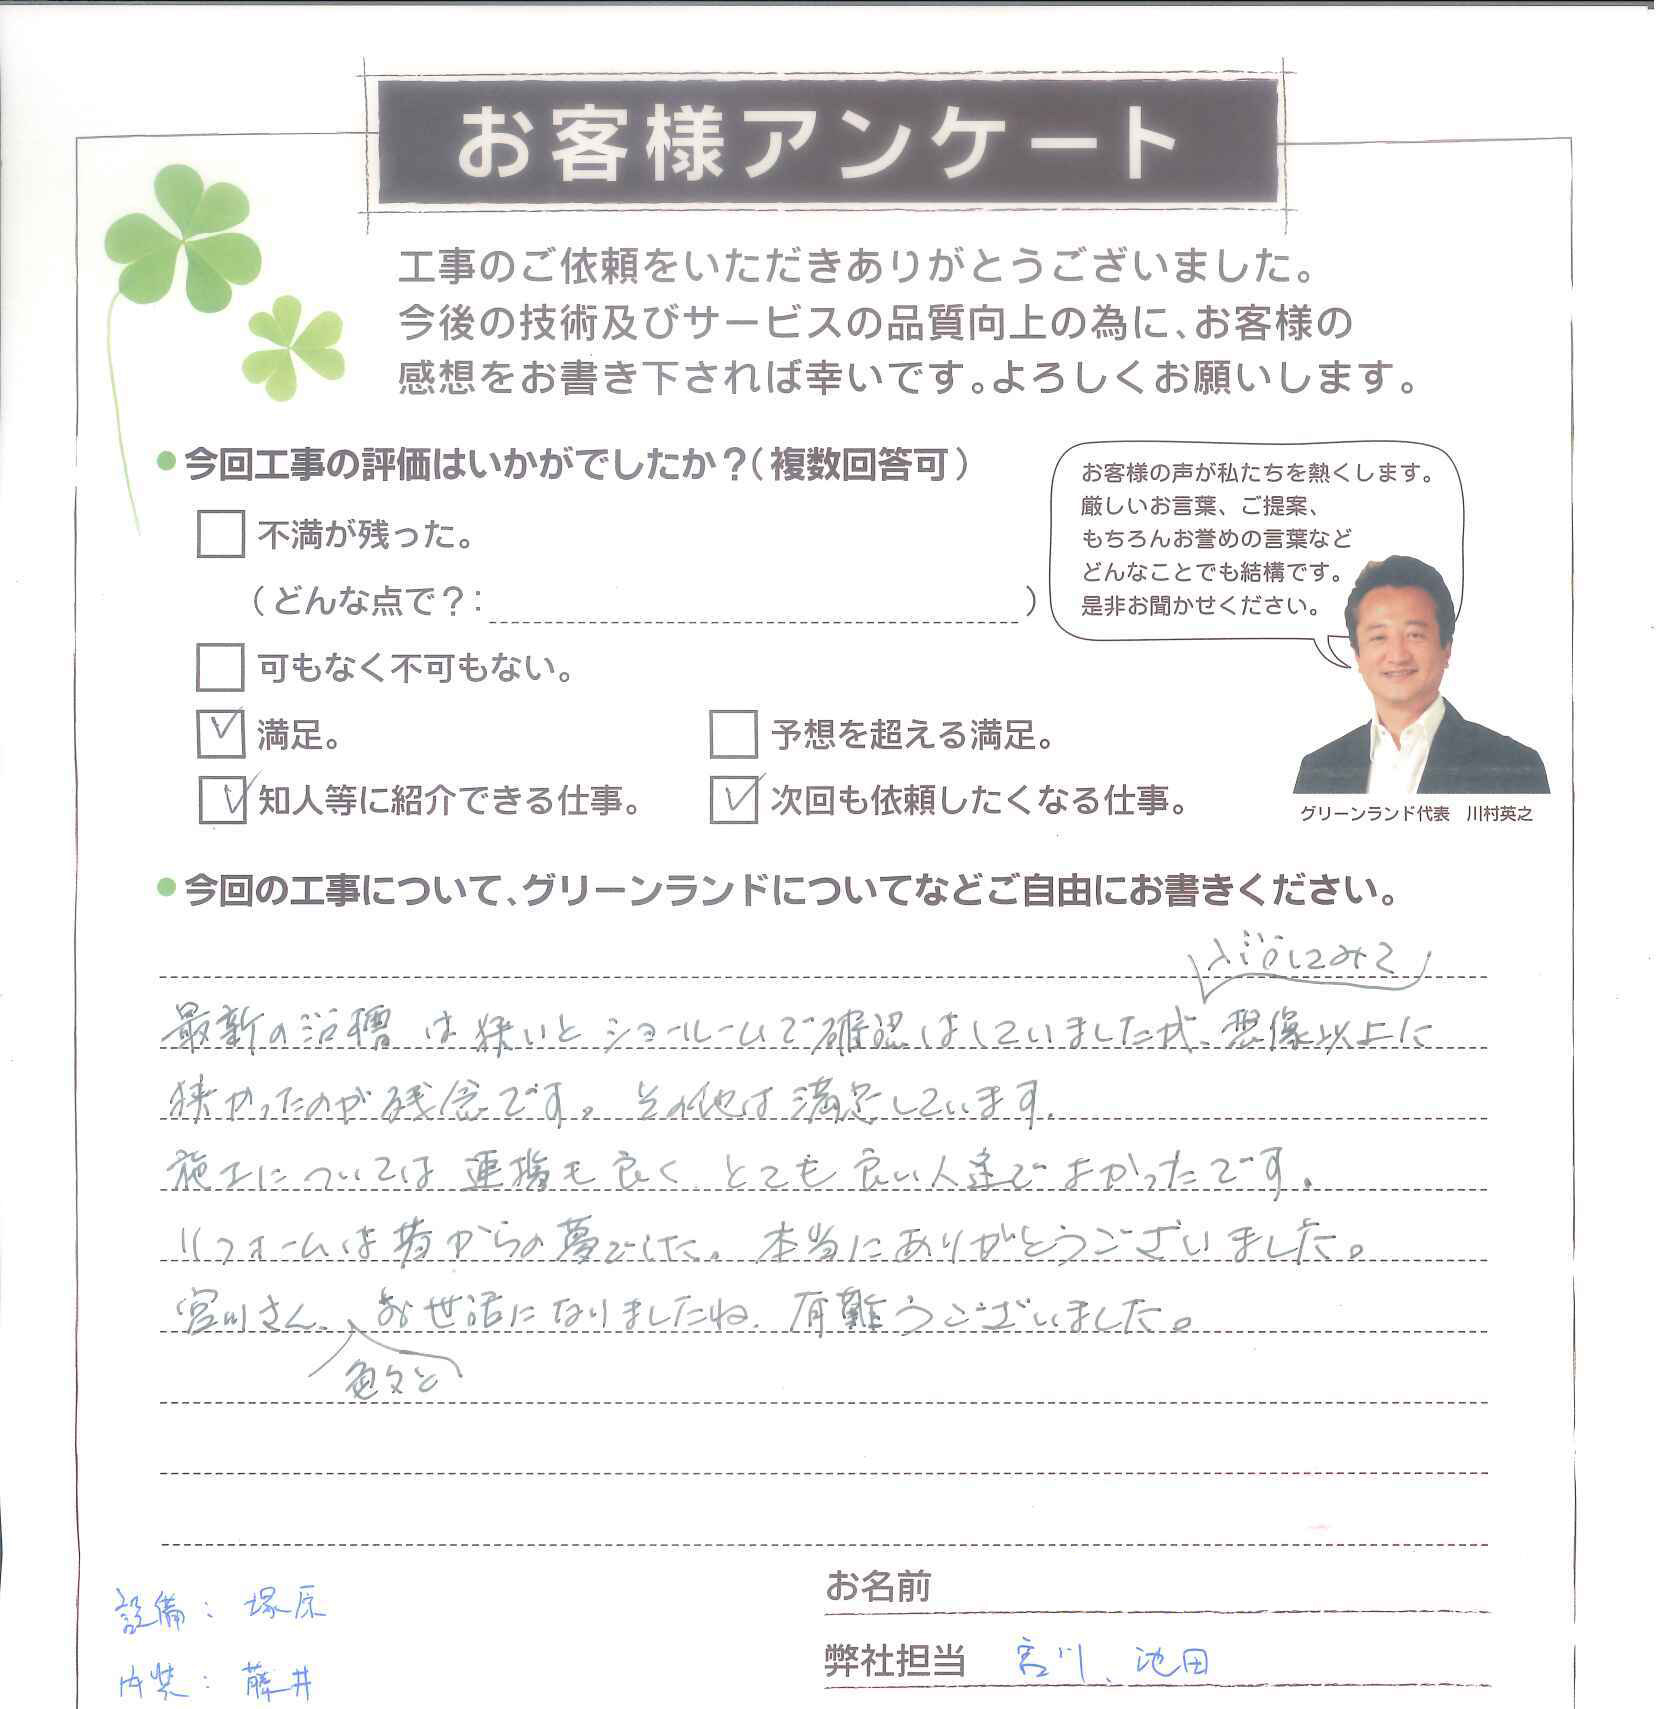 お客様アンケート
工事のご依頼をいただきありがとうございました。
今後の技術及びサービスの品質向上の為に、お客様の
感想をお書き下されば幸いです。よろしくお願いします。
今回工事の評価はいかがでしたか？（複数回答可）
不満が残った。
（どんな点で？： ）
可もなく不可もない。
満足。 予想を超える満足。
知人等に紹介できる仕事。 次回も依頼したくなる仕事。
お客様の声が私たちを熱くします。
厳しいお言葉、ご提案、
もちろんお誉めの言葉など
どんなことでも結構です。
是非お聞かせください。
グリーンランド代表 川村英之
今回の工事について、グリーンランドについてなどご自由にお書きください。
入浴してみて
最新の浴槽は狭いとショールームで確認はしていましたが、想像以上に
狭かったのが残念です。その他は満足しています。
施工については連携も良くとても良い人達でよかったです。
リフォームは昔からの夢でした。本当にありがとうございました。
宮川さん、お世話になりましたね。有難うございました。
色々と
設備：塚原
内装：藤井
お名前
弊社担当 宮川、池田